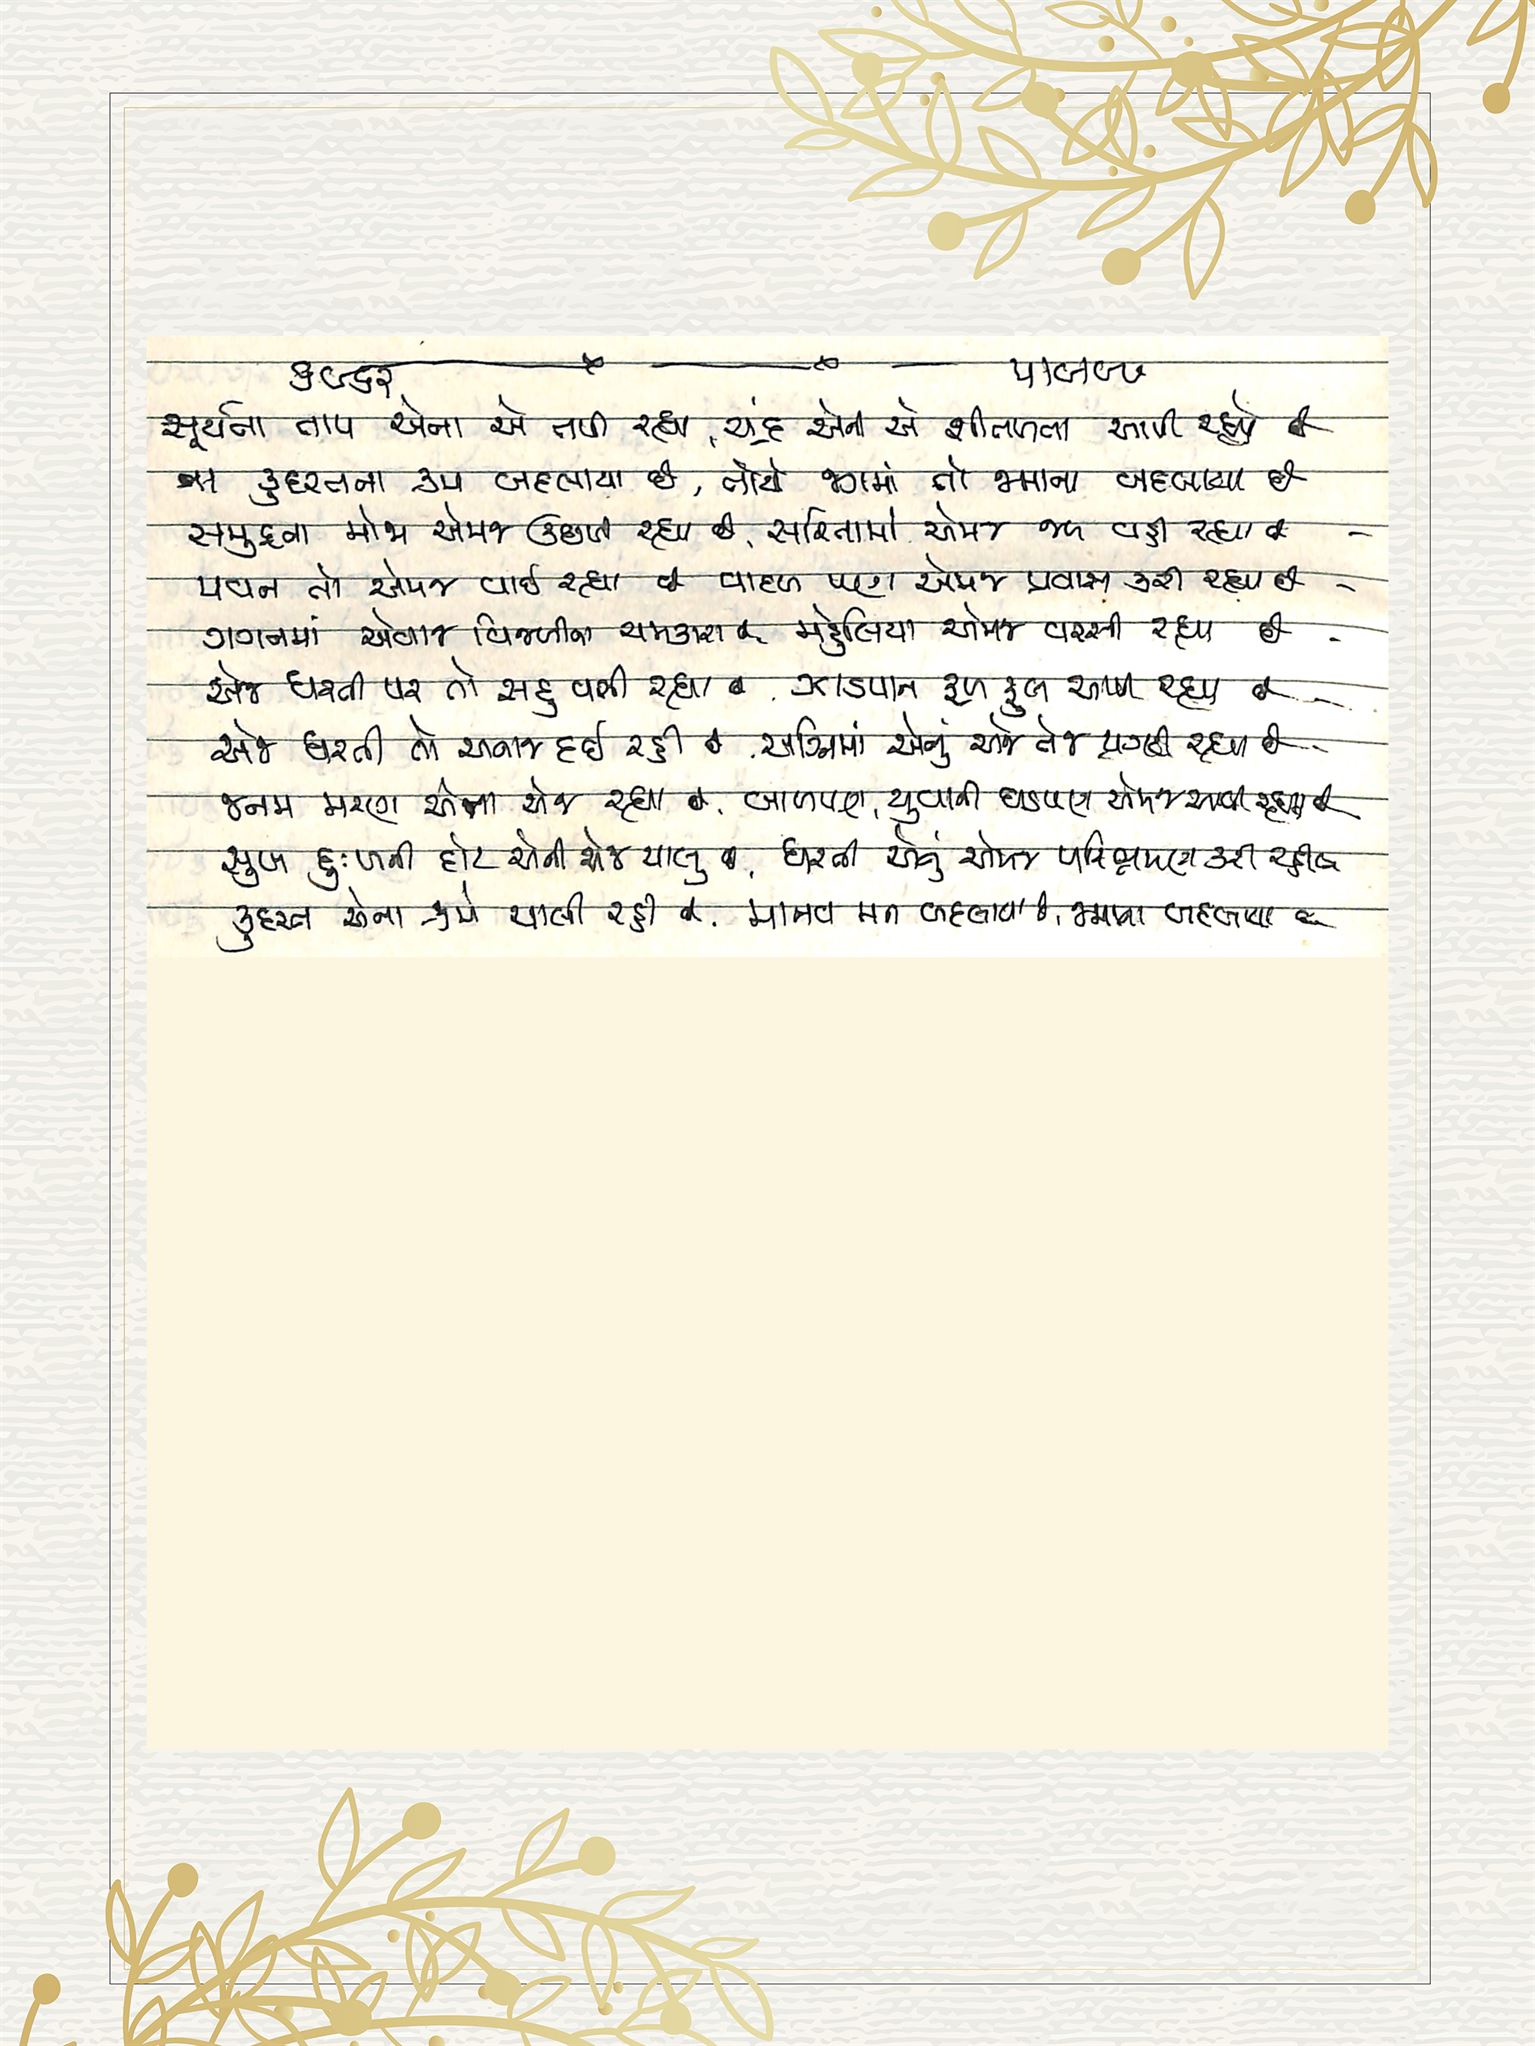 સૂર્યના તાપ એના એ તપી રહ્યા, ચંદ્ર એની એ શીતળતા આપી રહ્યો છે
ના કુદરતના ક્રમ બદલાયા છે, તોયે જગમાં તો જમાના બદલાયા છે
સમુદ્રના મોજા એમજ ઉછળી રહ્યા છે, સરિતામાં એમજ જળ વહી રહ્યા છે -
પવન તો એમજ વાઈ રહ્યા છે વાદળ પણ એમજ પ્રવાસ કરી રહ્યા છે -
ગગનમાં એવાજ વિજળીના ચમકારા છે, મહેુલિયા એમજ વરસી રહ્યા છે -
એજ ધરતી પર તો સહુ વસી રહ્યા છે, ઝાડપાન ફળ ફુલ આપી રહ્યા છે -
એજ ધરતી તો અનાજ દઈ રહી છે, અગ્નિમાં એનું એજ તેજ પ્રગટી રહ્યા છે -
જનમ મરણ એના એજ રહ્યા છે, બાળપણ, યુવાની ઘડપણ એમજ આવી રહ્યા છે
સુખ દુઃખની દોટ એની એજ ચાલુ છે, ધરતી એનું એમજ પરિભ્રમણ કરી રહી છે
કુદરત એના ક્રમે ચાલી રહી છે, માનવ મન બદલાયા છે, જમાના બદલાયા છે